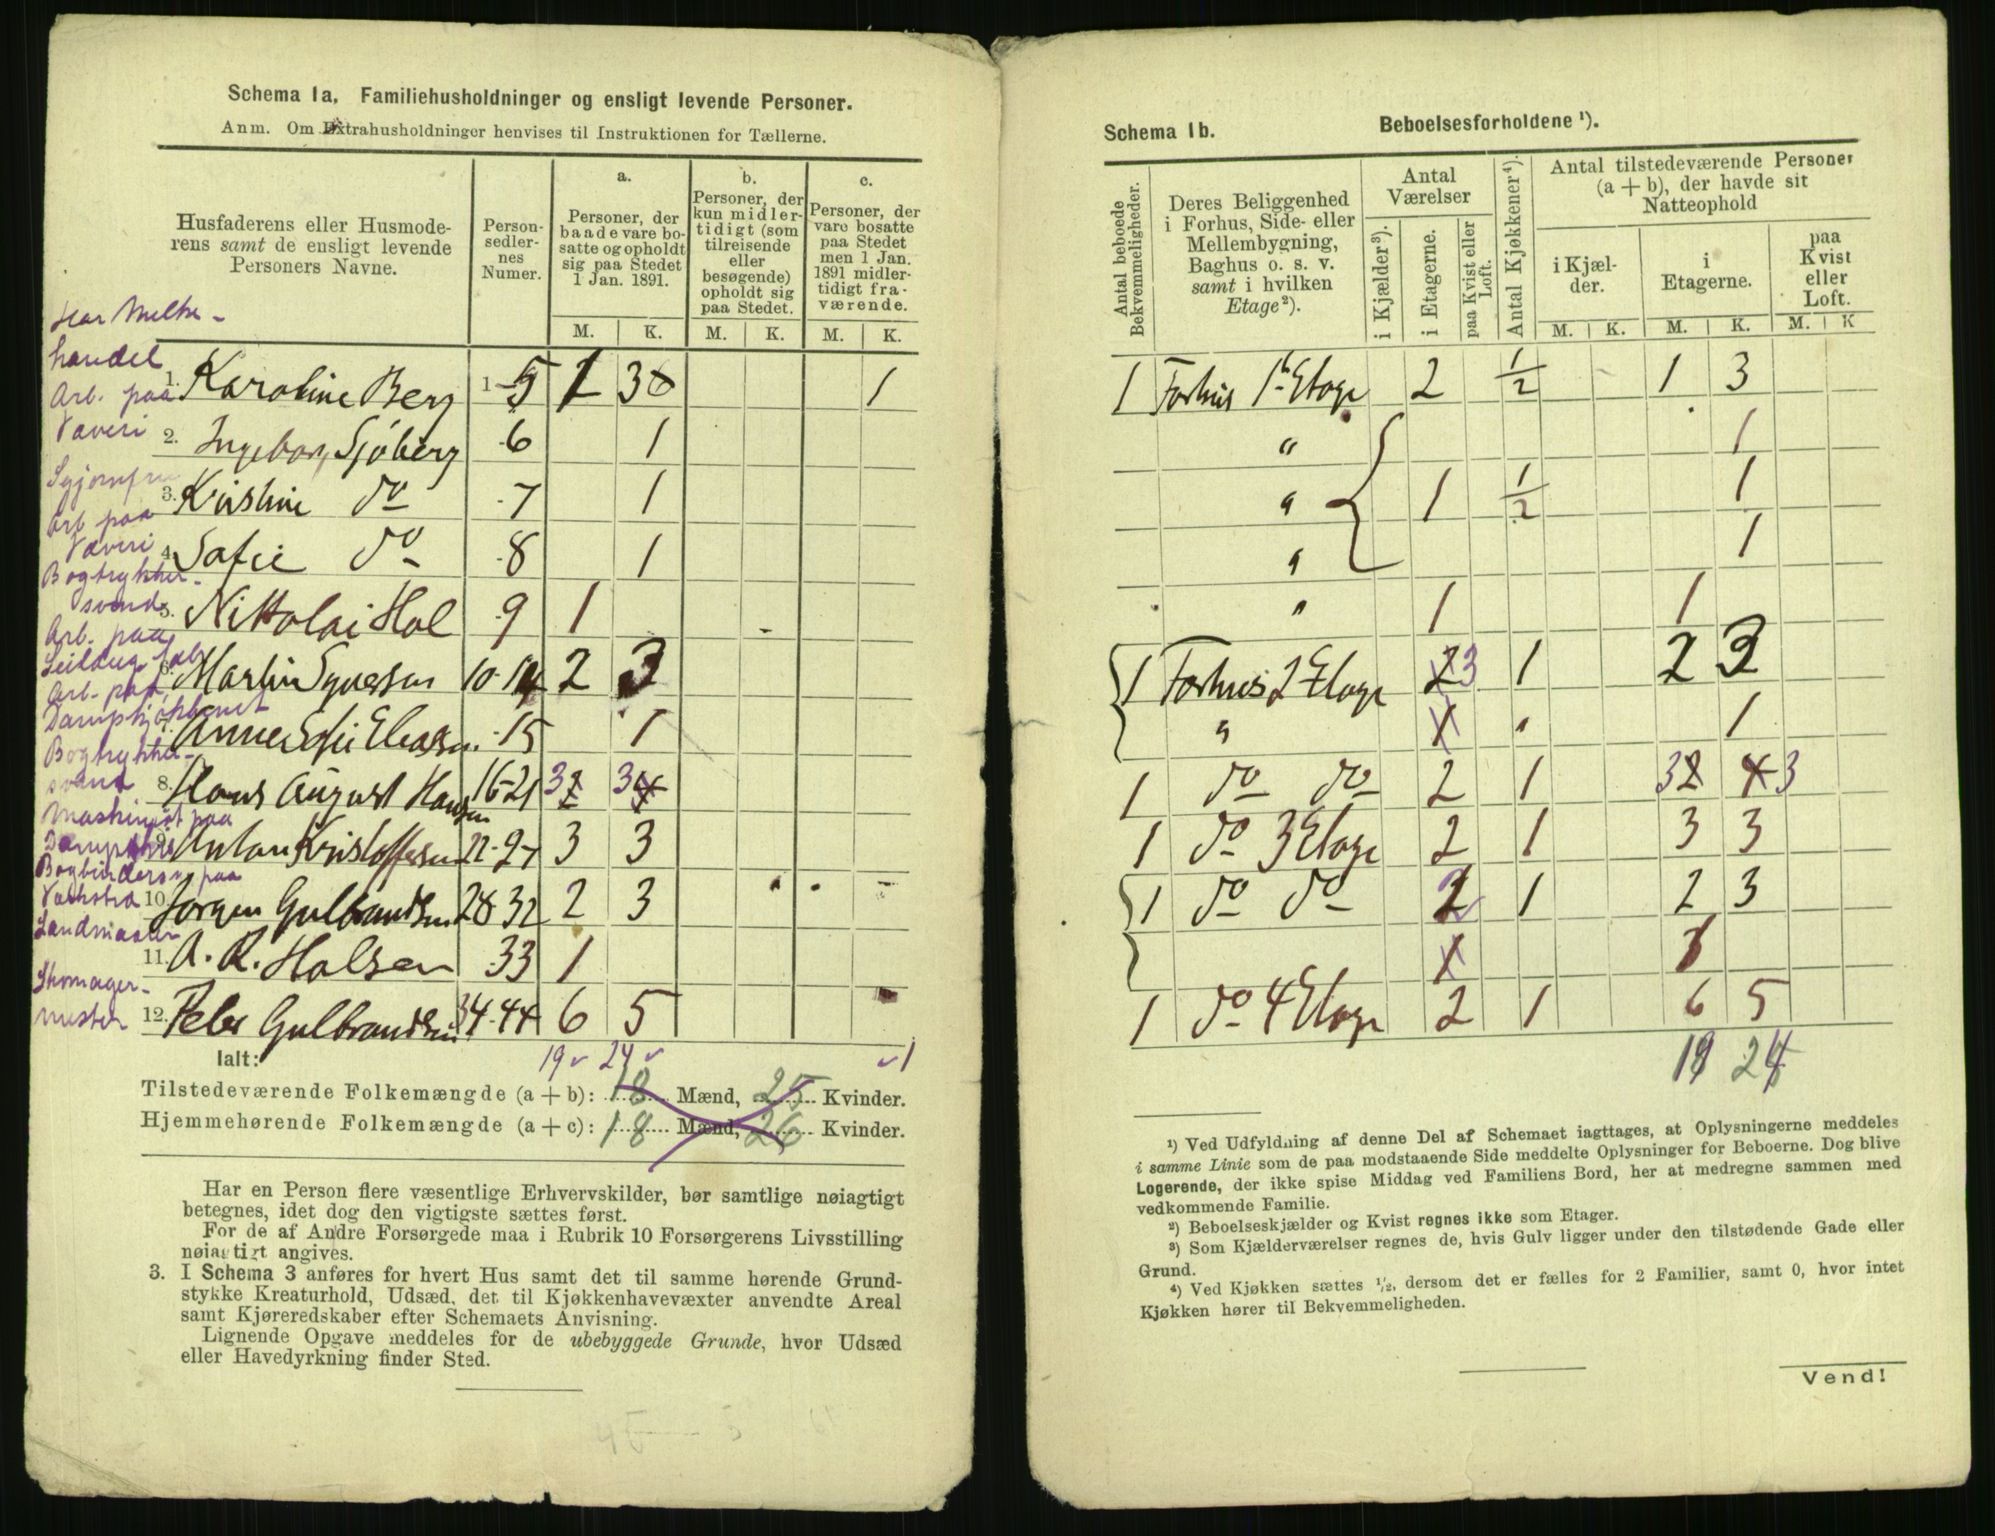 Schema 1a. Familiehusholdninger og ensligt levende Personer.
Anm. Om Extrahusholdninger henvises til Instruktionen for Tællerne.
Husfaderens eller Husmode-
rens samt de ensligt levende
Personers Navne.
Person-
sedler-
nes
Numer.
a.
Personer, der
baade vare bo-
satte og opholdt
sig paa Stedet
1 Jan. 1891.
b.
Personer, der
kun midler-
tidigt (som
tilreisende
eller
besøgende)
opholdt sig
paa Stedet.
c.
Personer, der
vare bosatte
paa Stedet
men 1 Jan.
1891 midler-
tidigt fra-
værende.
M. K. M. K. M. K.
Har Melke-
handel
1. Karoline Berg 1-5 1 3 1
Arb. paa
Væveri
2. Ingeborg Sjöberg 6 1
Syjomfru
3. Kristine do 7 1
Arb. paa
Væveri
4. Sofie do 8 1
Bogtrykker-
svend
5. Nikolai Hol 9 1
Arb. paa
6. Martin 10-14 2 3
Arb. paa
7. Anne Sofie Eliasen 15 1
Bogtrykker-
svend
8. Hans August Hansen 16-21 3 3
Maskinist paa
9. Anton Kristoffersen 22-27 3 3
paa
10. Jørgen Gulbrandsen 28-32 2 3
11. A. R. Holsen 33 1
Skomager-
mester
12. Peder Gulbrandsen 34-44 6 5
Ialt: 19 24 1
Tilstedeværende Folkemængde (a + b): 18 Mænd, 25 Kvinder.
Hjemmehørende Folkemængde (a + c): 18 Mænd, 26 Kvinder.
Har en Person flere væsentlige Erhvervskilder, bør samtlige nøiagtigt
betegnes, idet dog den vigtigste sættes først.
For de af Andre Forsørgede maa i Rubrik 10 Forsørgerens Livsstilling
nøiagtigt angives.
3. I Schema 3 anføres for hvert Hus samt det til samme hørende Grund-
stykke Kreaturhold, Udsæd, det til Kjøkkenhavevæxter anvendte Areal
samt Kjøreredskaber efter Schemaets Anvisning.
Lignende Opgave meddeles for de ubebyggede Grunde, hvor Udsæd
eller Havedyrkning finder Sted.
Schema 1b. Beboelsesforholdene ¹).
Antal beboede
Bekvemmeligheder.
Deres Beliggenhed
i Forhus, Side- eller
Mellembygning,
Baghus o. s. v.
samt i hvilken
Etage ²).
Antal
Værelser
i Kjælder ³).
i Etagerne.
paa Kvist eller
Loft.
Antal Kjøkkener ⁴).
Antal tilstedeværende Personer
(a + b), der havde sit
Natteophold
i Kjæl-
der.
i
Etagerne.
paa
Kvist
eller
Loft.
M. K. M. K. M. K
1 Forhus 1ste Etage 2 1/2 1 3
" 1
" 1 1/2 1
" 1
" 1 1
1 Forhus 2 Etage 3 1 2 3
" 1 " 1
1 do do 2 1 3 3
1 do 3 Etage 2 1 3 3
1 do do 2 1 2 3
1 1
1 do 4 Etage 2 1 6 5
19 24
¹) Ved Udfyldning af denne Del af Schemaet iagttages, at Oplysningerne meddeles
i samme Linie som de paa modstaaende Side meddelte Oplysninger for Beboerne. Dog blive
Logerende, der ikke spise Middag ved Familiens Bord, her at medregne sammen med
vedkommende Familie.
²) Beboelseskjælder og Kvist regnes ikke som Etager.
³) Som Kjælderværelser regnes de, hvis Gulv ligger under den tilstødende Gade eller
Grund.
⁴) Ved Kjøkken sættes 1/2, dersom det er fælles for 2 Familier, samt 0, hvor intet
Kjøkken hører til Bekvemmeligheden.
Vend!